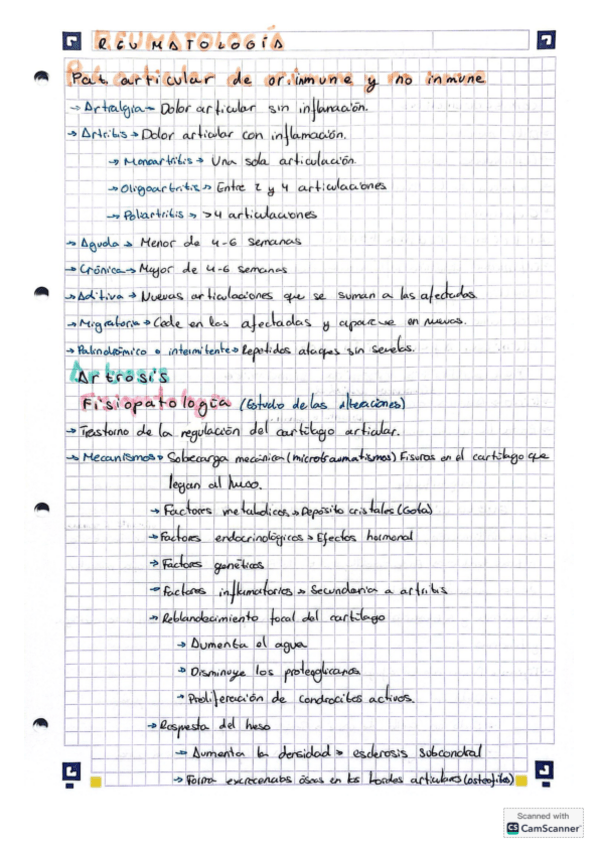 REUMATOLOGÍA
Pat. articular de or. inmune y no inmune
→ Artralgia → Dolor articular sin inflamación.
→ Artritis → Dolor articular con inflamación.
→ Monoartritis → Una sola articulación
→ Oligoartritis → Entre 2 y 4 articulaciones
→ Poliartritis → >4 articulaciones
→ Aguda → Menor de 4-6 semanas
→ Crónica → Mayor de 4-6 semanas
→ Aditiva → Nuevas articulaciones que se suman a las afectadas
→ Migratoria → Cede en las afectadas y aparece en nuevas.
→ Palindrómico o intermitente → Repetidos ataques sin secuelas.
Artrosis
Fisiopatología (Estudio de las alteraciones)
→ Trastorno de la regulación del cartílago articular.
→ Mecanismos → Sobecarga mecánica (microtraumatismos) Fisuras en el cartílago que
llegan al hueso.
→ Factores metabolicos → Depósito cristales (Gota)
→ Factores endocrinológicos → Efectos hormonal
→ Factores genéticos
→ Factores inflamatorios → Secundaria a artritis
→ Reblandecimiento focal del cartílago
→ Aumenta el agua
→ Disminuye los proteoglicanos
→ Proliferación de condrocitos activos.
→ Respuesta del hueso
→ Aumenta la densidad → esclerosis subcondral
→ Forma excrecencias óseas en los bordes articulares (osteofitos)
Scanned with
CS CamScanner